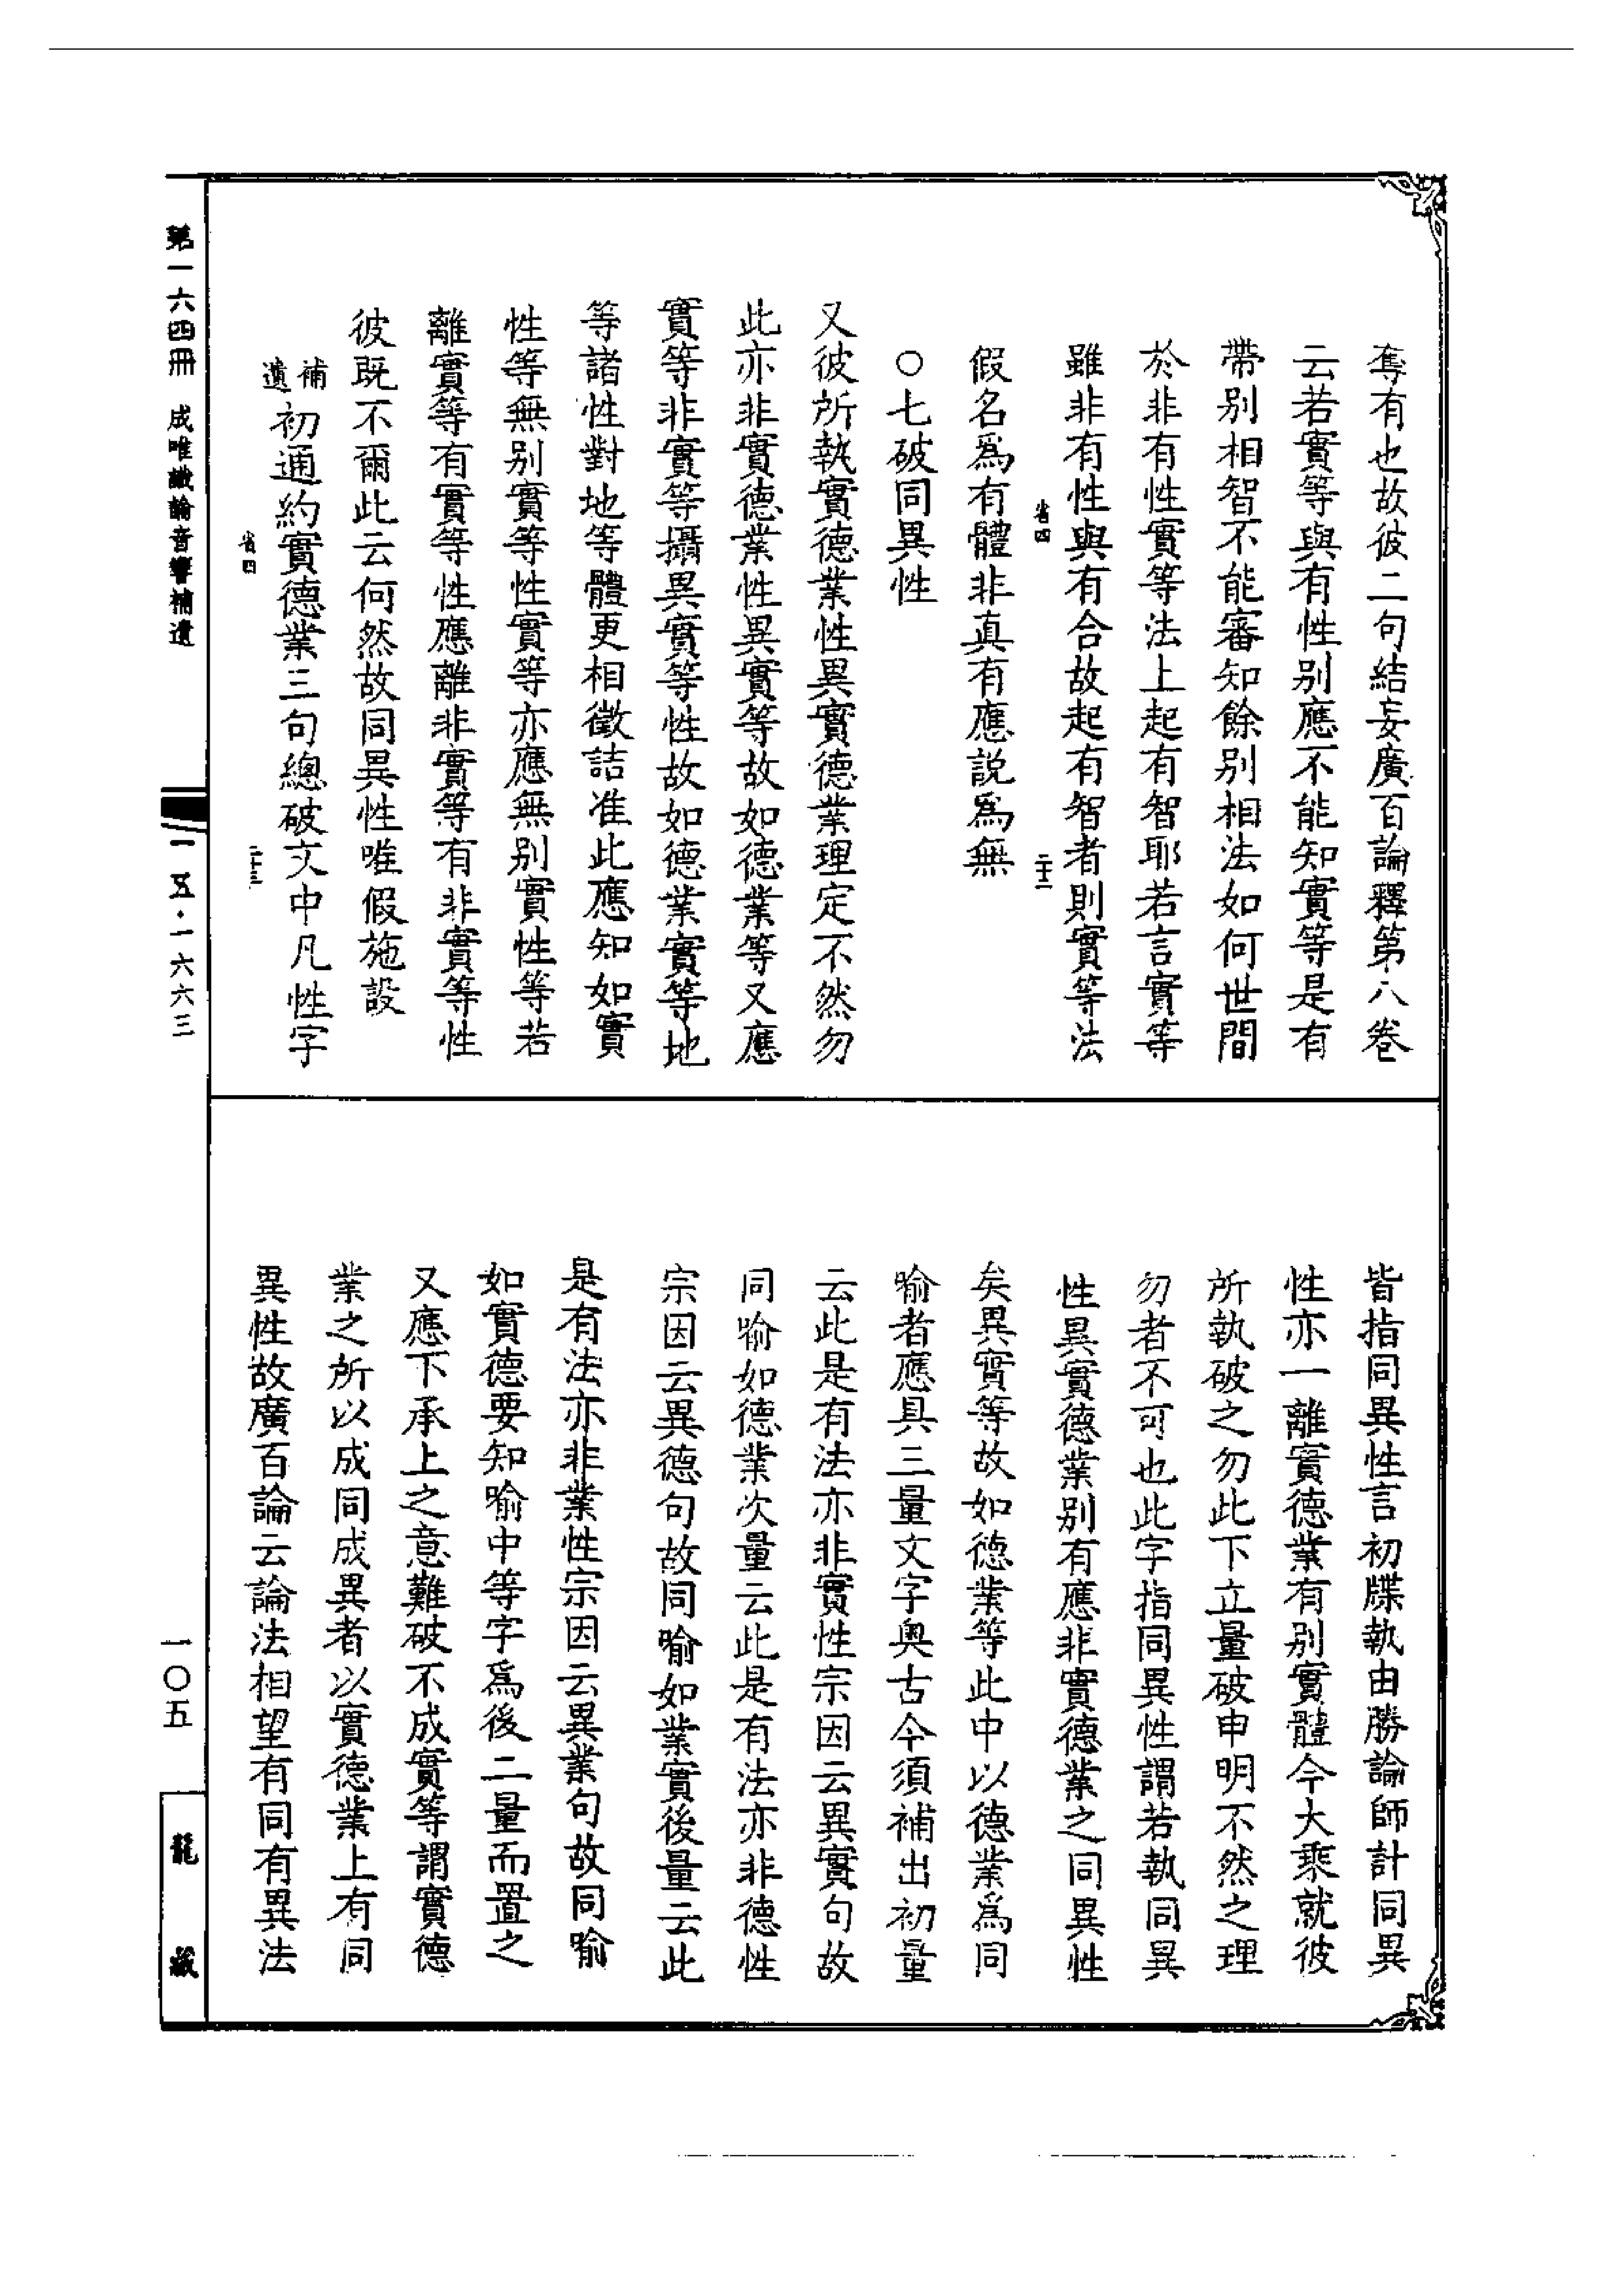 奪有也故彼二句結妄廣百論釋第八卷
云若實等與有性別應不能知實等是有
帶別相智不能審知餘別相法如何世間
於非有性實等法上起有智耶若言實等
雖非有性與有合故起有智者則實等法
省四 二十二
假名爲有體非真有應説爲無
○七破同異性
又彼所執實德業性異實德業理定不然勿
此亦非實德業性異實等故如德業等又應
實等非實等攝異實等性故如德業實等地
等諸性對地等體更相徵詰准此應知如實
性等無別實等性實等亦應無別實性等若
離實等有實等性應離非實等有非實等性
彼既不爾此云何然故同異性唯假施設
補遺 初通約實德業三句總破文中凡性字
省四 二十三
皆指同異性言初牒執由勝論師計同異
性亦一離實德業有別實體今大乘就彼
所執破之勿此下立量破申明不然之理
勿者不可也此字指同異性謂若執同異
性異實德業別有應非實德業之同異性
矣異實等故如德業等此中以德業爲同
喻者應具三量文字奥古今須補出初量
云此是有法亦非實性宗因云異實句故
同喻如德業次量云此是有法亦非德性
宗因云異德句故同喻如業實後量云此
是有法亦非業性宗因云異業句故同喻
如實德要知喻中等字爲後二量而置之
又應下承上之意難破不成實等謂實德
業之所以成同成異者以實德業上有同
異性故廣百論云論法相望有同有異法
第一六四冊 成唯識論音響補遺
一五·一六六三
一〇五
龍藏